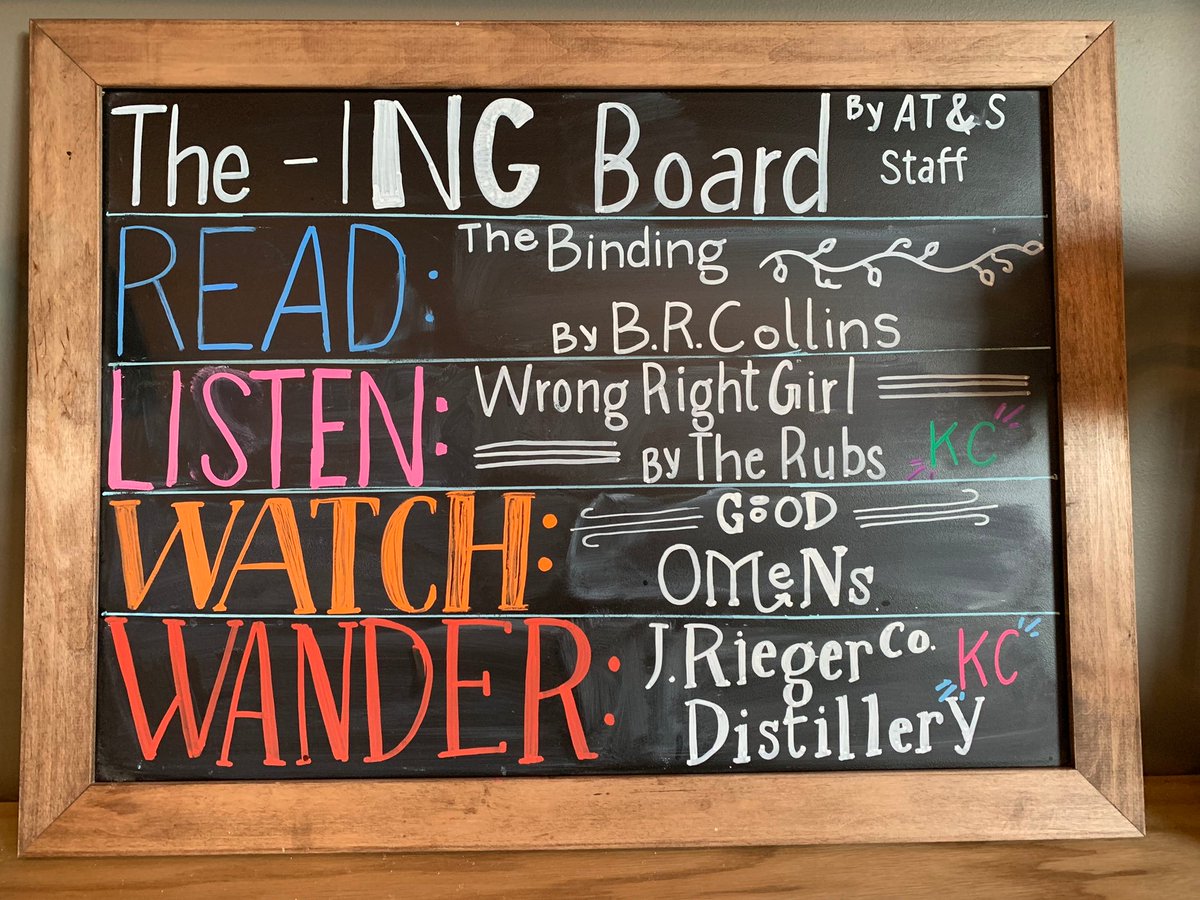 The -ING Board By AT&S
Staff
READ: The Binding
By B.R. Collins
LISTEN: Wrong Right Girl
By The Rubs KC
WATCH: GOOD
OMeNs
WANDER: J. Rieger Co. KC
Distillery